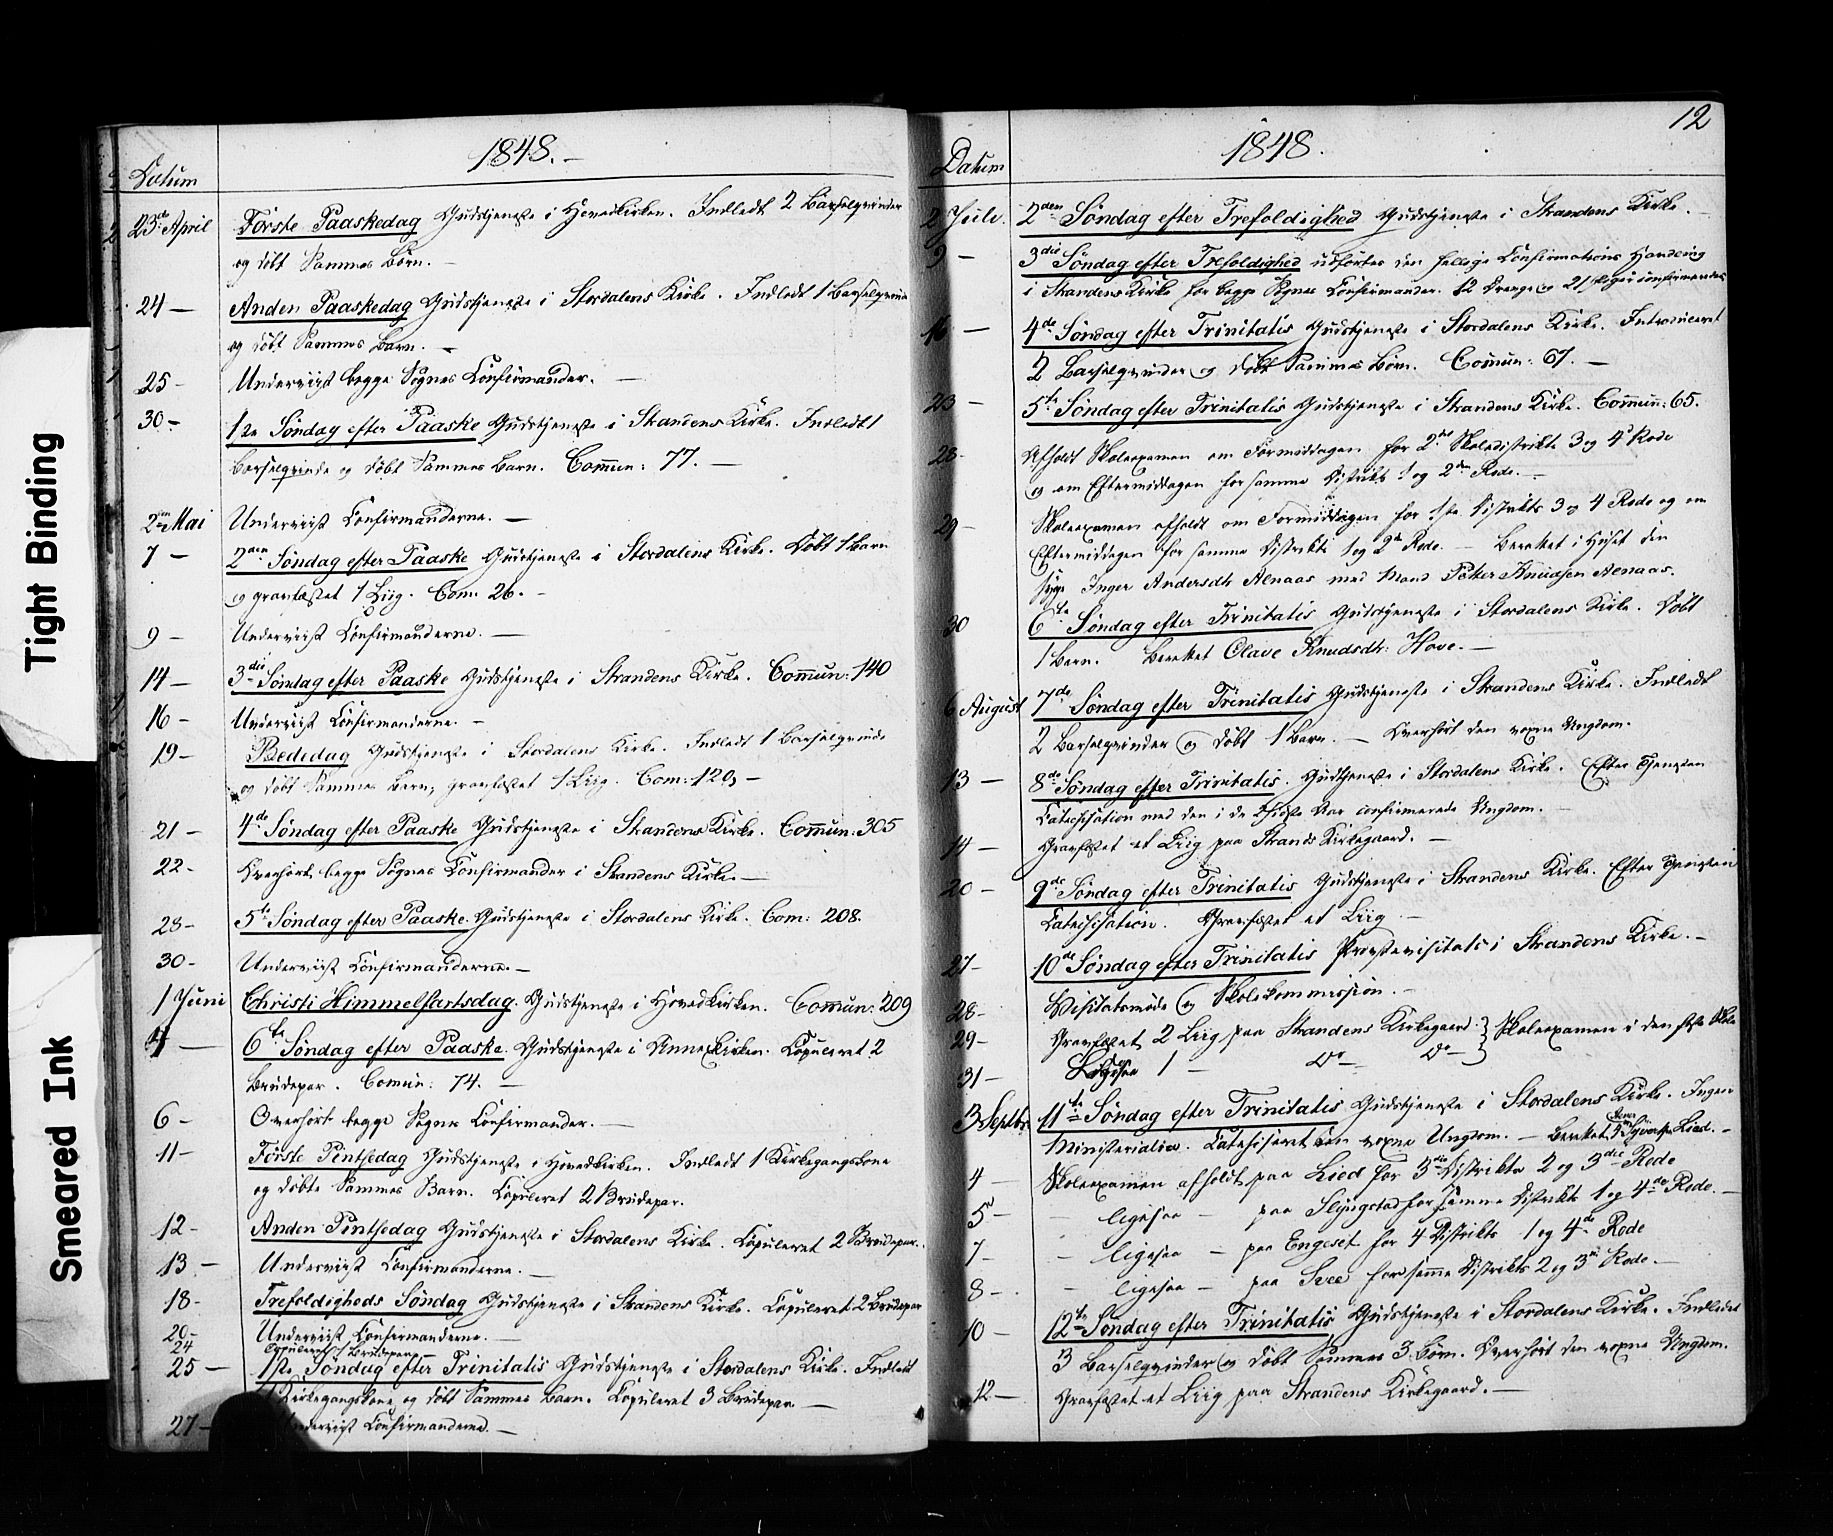 Tight Binding
Smeared Ink
1848.
Datum
23de April Første Paaskedag Gudstjeneste i Hovedkirken. Indledt 2 Barselqvinder
og døbt Sammes Børn. —
24 — Anden Paaskedag Gudstjeneste i Stordalens Kirke. Indledt 1 Barselqvinde
og døbt Sammes Barn. —
25 — Underviist begge Sognes Confirmander. —
30 — 1ste Søndag efter Paaske Gudstjeneste i Strandens Kirke. Indledt 1
Barselqvinde og døbt Sammes Barn. Commun: 77. —
2den Mai Underviist Confirmanderne. —
7 — 2den Søndag efter Paaske Gudstjeneste i Stordalens Kirke. Døbt 1 Barn
og gravfæstet 1 Liig. Com: 26. —
9 — Underviist Confirmanderne. —
14 — 3die Søndag efter Paaske Gudstjeneste i Strandens Kirke. Commun: 140
16 — Underviist Confirmanderne. —
19 — Bededag Gudstjeneste i Stordalens Kirke. Indledt 1 Barselqvinde
og døbt Sammes Barn, gravfæstet 1 Liig. Com: 120, —
21 — 4de Søndag efter Paaske Gudstjeneste i Strandens Kirke. Commun: 305
22 — Overhørt begge Sognes Confirmander i Strandens Kirke. —
28 — 5te Søndag efter Paaske. Gudstjeneste i Stordalens Kirke. Com: 208.
30 — Underviist Confirmanderne. —
1 Juni Christi Himmelfartsdag. Gudstjeneste i Hovedkirken. Commun: 209
4 — 6te Søndag efter Paaske. Gudstjeneste i Annexkirken. Copuleret 2
Brudepar. Comun: 74. —
6 — Overhørt begge Sognes Confirmander. —
11 — Første Pintsedag Gudstjeneste i Hovedkirken. Indledt 1 Kirkegangskone
og døbte Sammes Barn. Copuleret 2 Brudepar.
12 — Anden Pintsedag Gudstjeneste i Stordalens Kirke. Copuleret 2 Brudepar.
13 — Underviist Confirmanderne. —
18 — Trefoldigheds Søndag Gudstjeneste i Strandens Kirke. Copuleret 2 Brudepar
20 — Underviist Confirmanderne. —
24 Copuleret 1 Brudepar —
25 — 1ste Søndag efter Trinitatis Gudstjeneste i Stordalens Kirke. Indledt
1 Kirkegangskone og døbt Sammes Barn. Copuleret 3 Brudepar —
27 — Underviist Confirmanderne. —
12
1848.
Datum
2 Juli. 2den Søndag efter Trefoldighed Gudstjeneste i Strandens Kirke. —
9 — 3die Søndag efter Trefoldighed udførtes den hellige Confirmations Handling
i Strandens Kirke for begge Sognes Confirmander. 12 Drenge og 21 Piger confirmeredes
16 — 4de Søndag efter Trinitatis Gudstjeneste i Stordalens Kirke. Introduceret
2 Barselqvinder og døbt Sammes Børn. Commun: 67. —
23 — 5te Søndag efter Trinitatis Gudstjeneste i Strandens Kirke. Commun: 65.
28 — Afholdt Skoleexamen om Formiddagen for 2det Skoledistrikts 3 og 4de Rode
og om Eftermiddagen for samme Distrikts 1 og 2den Rode. —
29 — Skoleexamen afholdt om Formiddagen for 1ste Distrikts 3 og 4 Rode og om
Eftermiddagen for samme Distrikts 1 og 2d Rode. — Berettet i Huset den
syge Inger Andersdtr Alnaas med Mand Petter Knudsen Alnaas.
30 6te Søndag efter Trinitatis Gudstjeneste i Stordalens Kirke. Døbt
1 Barn. Berettet Olave Knudsdtr: Hove. —
6 August 7de Søndag efter Trinitatis Gudstjeneste i Strandens Kirke. Indledt
2 Barselqvinder og døbt 1 Barn. — Overhørt den voxne Ungdom.
13 — 8de Søndag efter Trinitatis. Gudstjeneste i Stordalens Kirke. Efter Tjenesten
Catechisation med den i de 2 sidste Aar confirmerede Ungdom. —
14 — Gravfæstet et Liig paa Strands Kirkegaard. —
20 — 9de Søndag efter Trinitatis Gudstjeneste i Strandens Kirke. Efter Tjenesten
Catechisation. Gravfæstet et Liig. —
27 — 10de Søndag efter Trinitatis Provstevisitats i Strandens Kirke. —
28 — Visitatsmøde og Skolekommission. —
29 — Gravfæstet 2 Liig paa Strandens Kirkegaard } Skoleexamen i den faste Skole
31 — Ligesaa 1 — Do — Do —
3 Septbr. 11te Søndag efter Trinitatis Gudstjeneste i Stordalens Kirke. Ingen
Ministerialia. Catechiseret den voxne Ungdom. — Berettet Sivertsen Lied. —
4 — Skoleexamen afholdt paa Lied for 3die Distrikts 2 og 3die Rode
5 — — ligesaa — paa Slyngstad for samme Distrikts 1 og 4de Rode. —
7 — — ligesaa — paa Engeset for 4 Distrikts 1 og 4de Rode
8 — — ligesaa — paa Svee for samme Distrikts 2 og 3die Rode. —
10 — 12te Søndag efter Trinitatis Gudstjeneste i Stordalens Kirke. Indledet
3 Barselqvinder og døbt Sammes 3 Børn. Overhørt den voxne Ungdom.
12 — Gravfæstet et Liig paa Strandens Kirkegaard. —